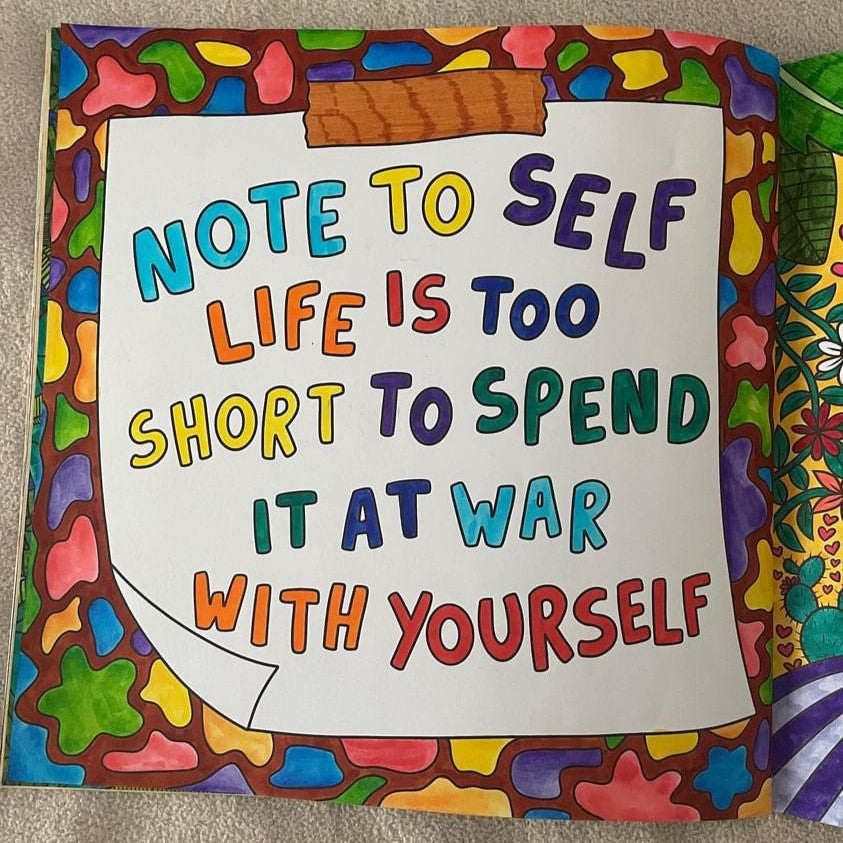 NOTE TO SELF
LIFE IS TOO
SHORT TO SPEND
IT AT WAR
WITH YOURSELF